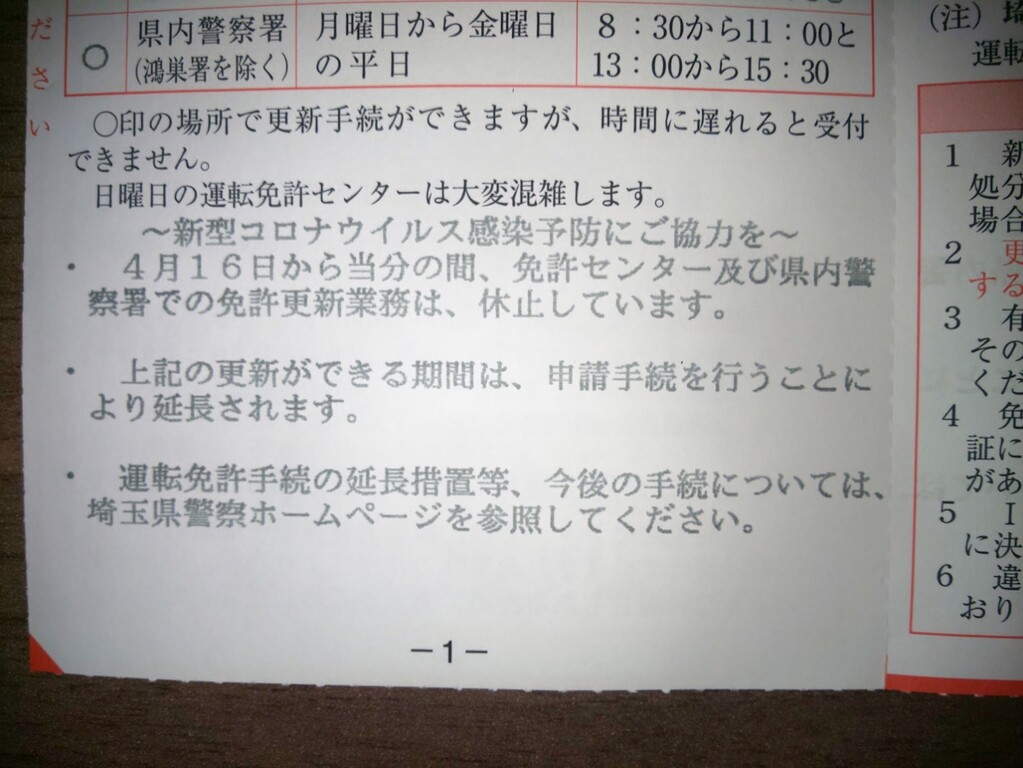 ださい
○ 県内警察署 月曜日から金曜日 8：30から11：00と
(鴻巣署を除く) の平日 13：00から15：30
○印の場所で更新手続ができますが、時間に遅れると受付
できません。
日曜日の運転免許センターは大変混雑します。
～新型コロナウイルス感染予防にご協力を～
・ ４月１６日から当分の間、免許センター及び県内警
察署での免許更新業務は、休止しています。
・ 上記の更新ができる期間は、申請手続を行うことに
より延長されます。
・ 運転免許手続の延長措置等、今後の手続については、
埼玉県警察ホームページを参照してください。
－1－
(注) 埼
運転
1 新
処分
場合
2 更
する
3 有
その
くだ
4 免
証に
があ
5 I
に決
6 違
おり